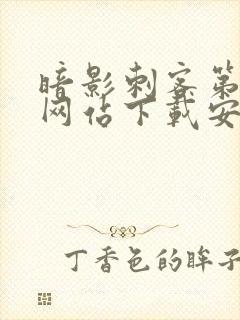 暗影刺客第
网站下载安
丁香色的眸子